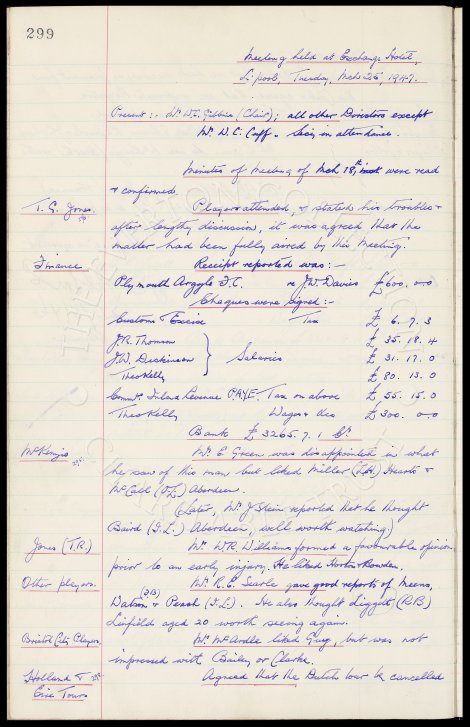 299
Meeting held at Exchange Hotel,
L'pool, Tuesday, Mch 25, 1947.
Present :- Mr. W.C. Gibbins, (Chair); all other Directors except
Mr. W.C. Cuff. Secy in attendance.
Minutes of Meeting of Mch 18th were read
& confirmed.
T.G. Jones.
Player attended, & stated his troubles &
after lengthy discussion, it was agreed that the
matter had been fully aired by this meeting.
Finance
Receipt reported was :-
Plymouth Argyle F.C. re J.W. Davies £600. 0-0
Cheques were signed :-
Customs & Excise Tax £ 6. 7. 3
J.R. Thomson £ 35. 18. 4
J.W. Dickinson } Salaries £ 31. 17. 0
Theo Kelly £ 80. 13. 0
Commr. Inland Revenue P.A.Y.E. Tax on above £ 55. 15. 0
Theo Kelly Wages &c £ 300. 0-0
Bank £ 3265. 7. 1 Cr.
McKenzie
Mr. E Green was disappointed in what
he saw of this man but liked Miller (L.H.) Hearts &
McCall (O.L.) Aberdeen.
(Later, Mr. J Sharp reported that he thought
Baird (I.L.) Aberdeen, well worth watching)
Jones (T.R.)
Mr. W.R. Williams formed a favourable opinion
prior to an early injury. He liked Horton & Rawden.
Other players.
Mr. R.E. Searle gave good reports of Means,
Watson (OR) & Peach (I.L.). He also thought Liggett (R.B)
Linfield aged 20 worth seeing again.
Bristol City Players
Mr. McArdle liked Guy, but was not
impressed with Bailey or Clarke.
Holland & Eire Tours
Agreed that the Dutch tour be cancelled